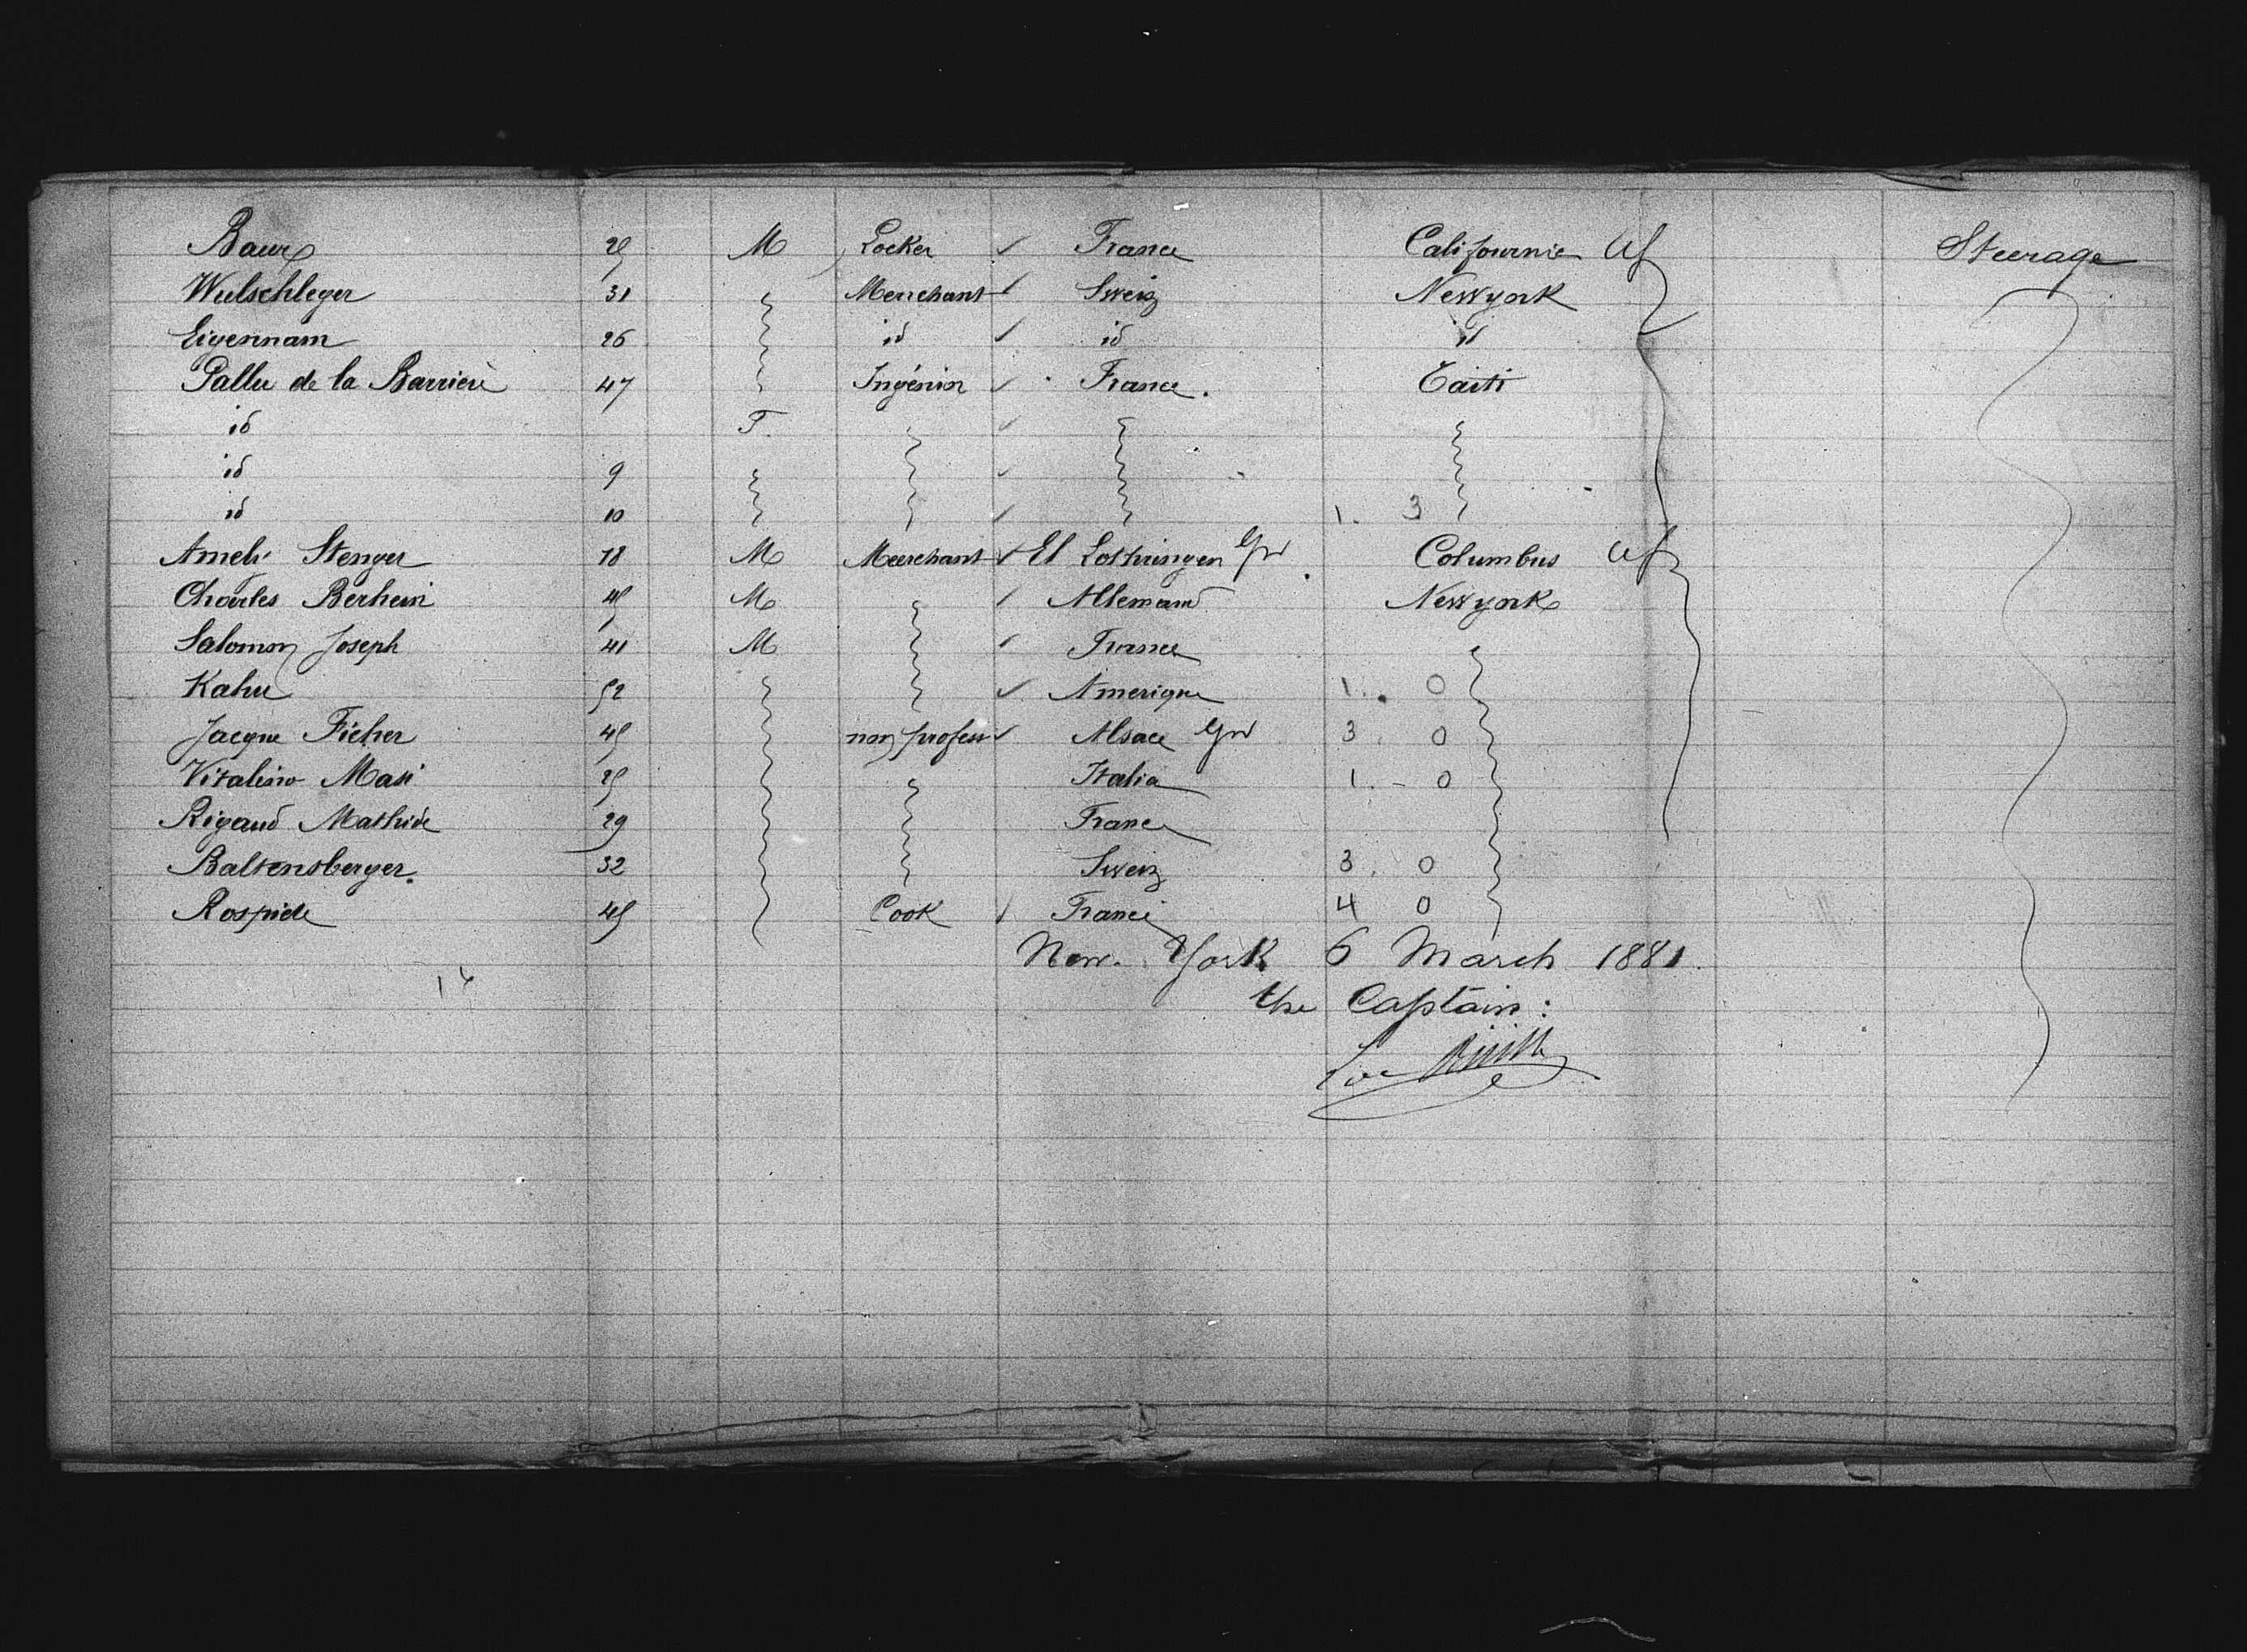 Baux 25 M Locker ✓ France Califournie Uf Steerage
Wulschleger 31 Merrchant ✓ Sweiz New york
Eigennam 26 id ✓ id id
Pallu de la Barrierè 47 Ingénior ✓ France. Taiti
id F. ✓
id 9 ✓
id 10 ✓ 1. 3
Ameli Stenger 18 M Meerchant ✓ El Lothringen Gr Columbus Uf
Charles Berhein 45 M ✓ Allemand New york
Salomon Joseph 41 M ✓ France
Kahn 52 ✓ Amerique 1. 0
Jacque Ficher 45 non profess ✓ Alsace Gr 3. 0
Vitalino Masi 25 Italia 1. - 0
Rigaud Mathide 29 France
Baltensberger. 32 Sweiz 3. 0
Rospide 45 Cook ✓ France 4 0
New. York 6 March 1881.
16
the Captain: